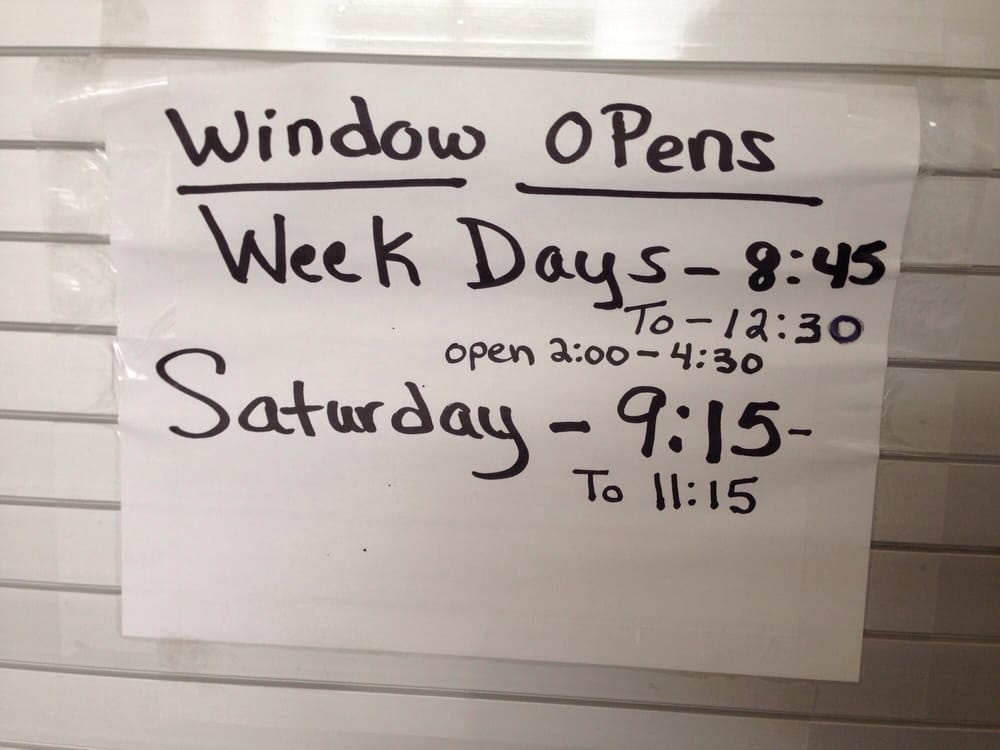 Window OPens
Week Days - 8:45
To - 12:30
open 2:00 - 4:30
Saturday - 9:15 -
To 11:15